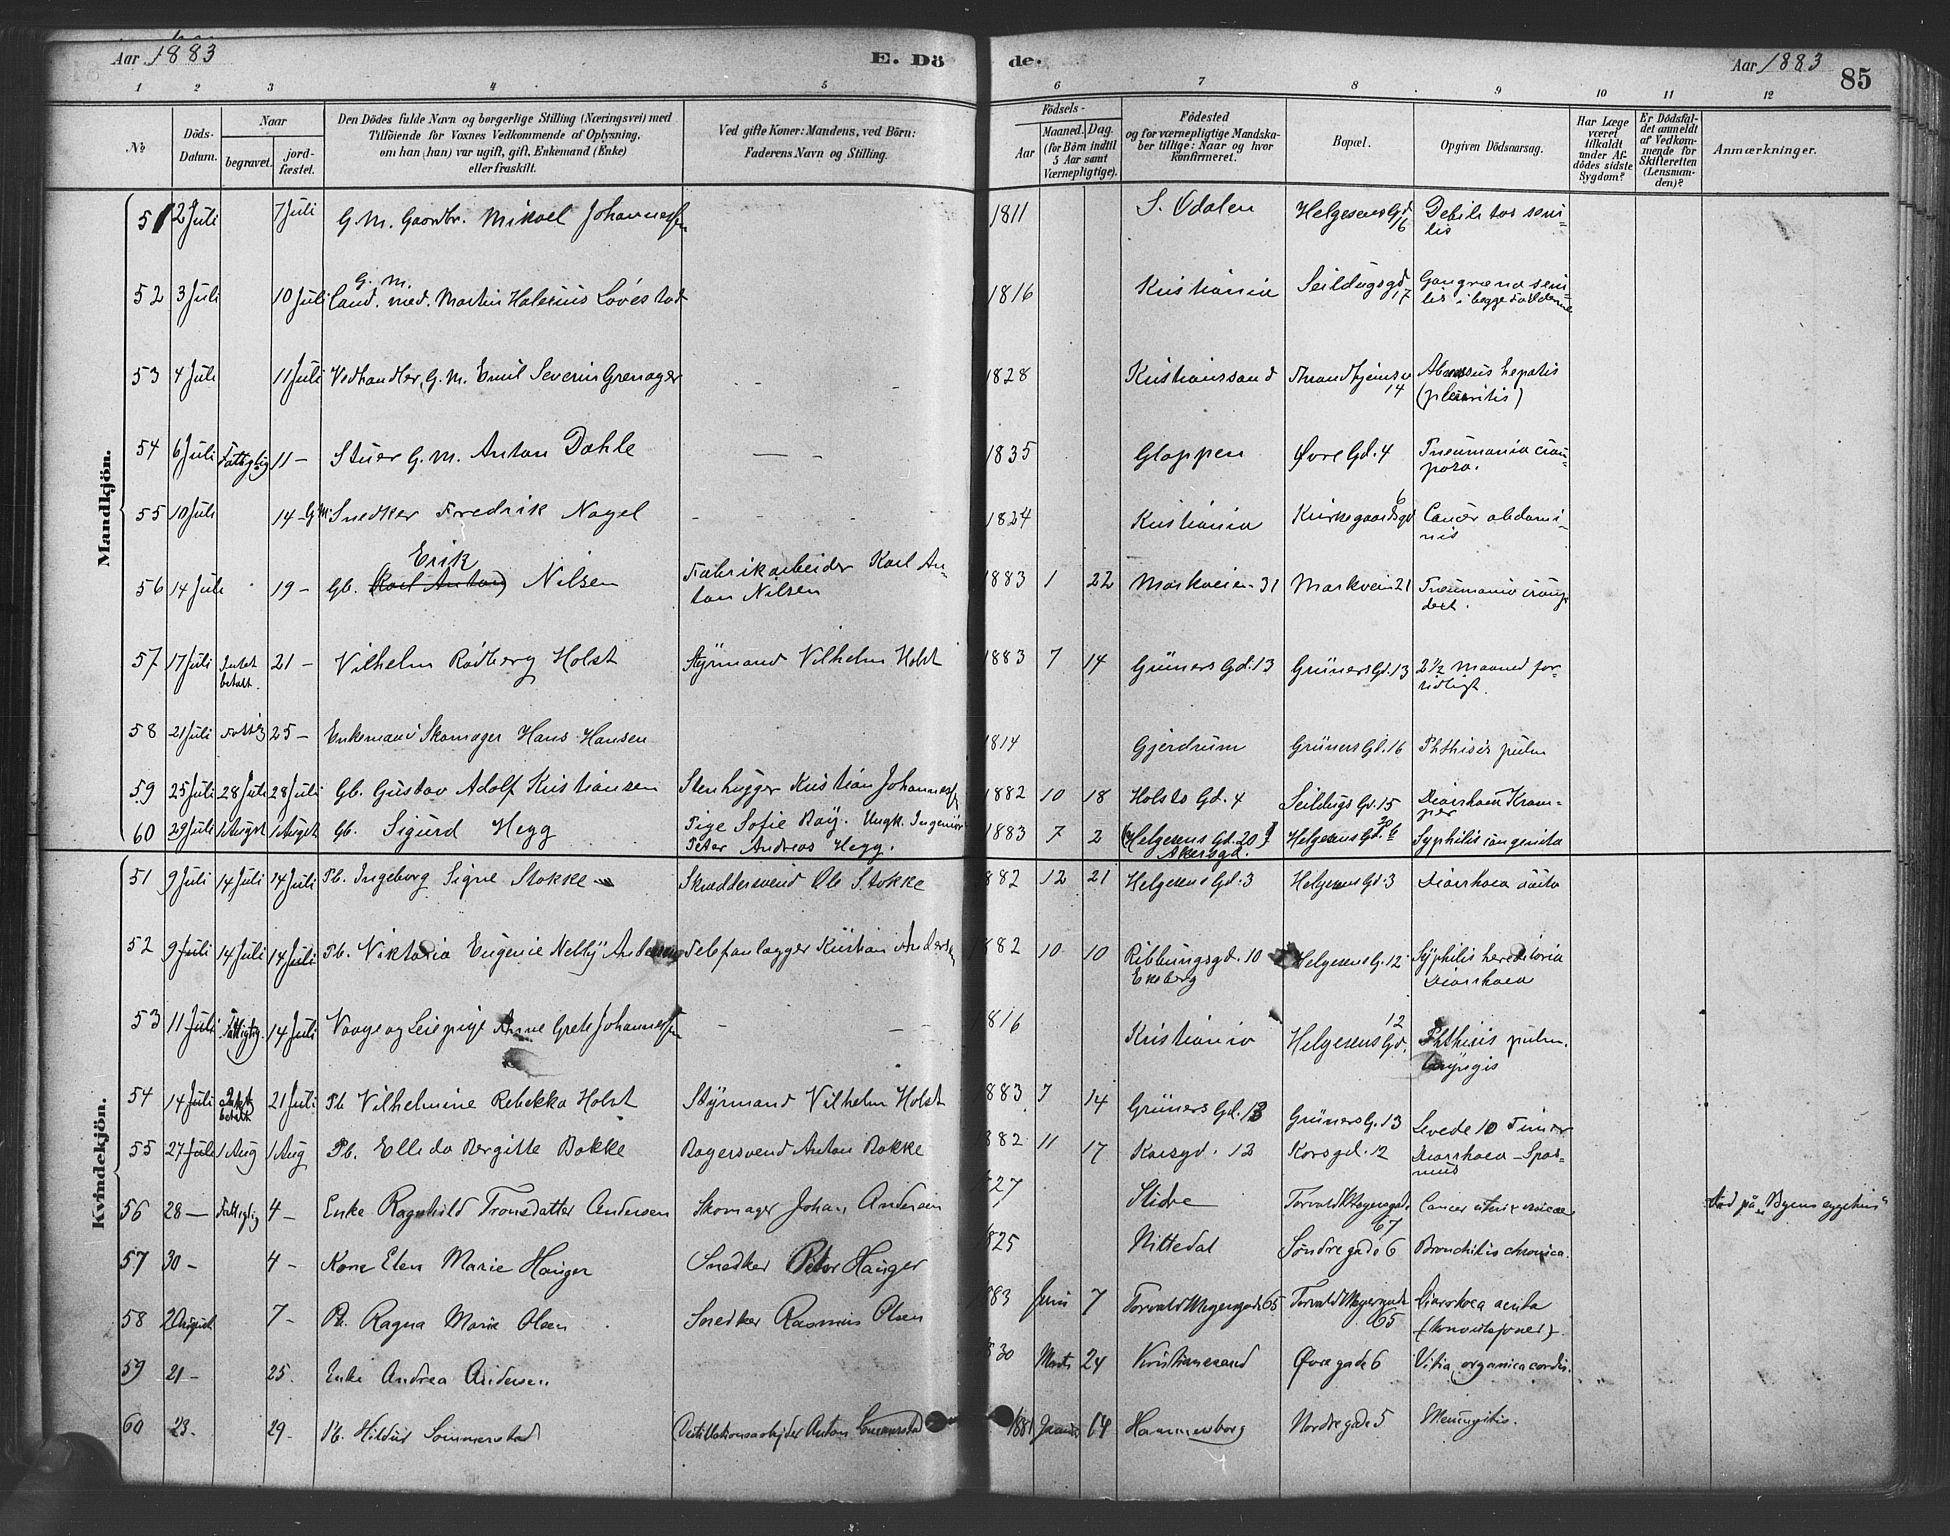 Aar 1883 E. Dö
1 2 3 4 5
No
Döds-
Datum.
Naar
begravet.
jord-
fæstet.
Den Dödes fulde Navn og borgerlige Stilling (Næringsvei) med
Tilföiende for Voxnes Vedkommende af Oplysning,
om han (hun) var ugift, gift, Enkemand (Enke)
eller fraskilt.
Ved gifte Koner: Mandens, ved Börn:
Faderens Navn og Stilling.
de. Aar 1883 85
6 7 8 9 10 11 12
Födsels-
Aar
Maaned. Dag.
(for Börn indtil
5 Aar samt
Værnepligtige).
Födested
og for værnepligtige Mandska-
ber tillige: Naar og hvor
konfirmeret.
Bopæl.
Opgiven Dödsaarsag.
Har Læge
været
tilkaldt
under Af-
dödes sidste
Sygdom?
Er Dödsfal-
det anmeldt
af Vedkom-
mende for
Skifteretten
(Lensman-
den)?
Anmærkninger.
Mandkjön.
51 2 Juli 7 Juli G. M. Gaardbr. Mikael Johannessen 1811 S. Odalen Helgesens Gd. 16 Debilitas seni-
lis
G. M.
52 3 Juli 10 Juli Cand. med. Martin Løvestad 1816 Kristiania Seildugsgd. 17 Gangræna seni-
lis i begge
53 4 Juli 11 Juli Vedhandler, G. M. Emil Severin Grenager - - 1828 Kristianssand 14 hepatis
(pleuritis)
54 6 Juli Fattiglig 11 - Stuer G. M. Anton Dahle - - 1835 Gloppen Øvre Gd. 4 Pneumonia crou-
posa.
55 10 Juli 14 - G.M. Snedker Fredrik Nagel - - - 1824 Kristiania Kirkegaardsgd 6 Cancer abdomi-
nis
Erik
56 14 Juli 19 - Gb. (Karl Anton) Nilsen Fabrikarbeider Karl An-
ton Nilsen 1883 1 22 Markveien 31 Markvein 21 Pneumonia croup.
dext.
57 17 Juli Intet
betalt. 21 - Vilhelm Rødberg Holst Styrmand Vilhelm Holst 1883 7 14 Grüners Gd. 13 Grüners Gd. 13 2½ Maaned for-
tidligt.
58 21 Juli 25 - Enkemand Skomager Hans Hansen 1814 Gjerdrum Grüners Gd. 16 Phthisis pulm
59 25 Juli 28 Juli 28 Juli Gb. Gustav Adolf Kristiansen Stenhugger Kristian Johannessen 1882 10 18 Holsts Gd. 4 Seildugs Gd. 15 Diarrhoea Kram-
per
60 29 Juli 1 August 1 August Gb. Sigurd Hegg Pige Sofie Ungk. Ingeniør
Peter Andreas Hegg. 1883 7 2 (Helgesens Gd. 20)
Akersgd. Helgesens Gd. Syphilis congenita
Kvindekjön.
51 9 Juli 14 Juli 14 Juli Pb. Ingeborg Signe Stokke Skræddersvend Ole Stokke 882 12 21 Helgesens Gd. 3 Helgesens Gd. 3 Diarrhoea acuta
52 9 Juli 14 Juli 14 Juli Pb. Viktoria Eugenie Nelly Andersen Telefonlægger Kristian Andersen 882 10 10 Ribbungsgd. 10
Ekeberg Helgesens G. 12 Syphilis hereditaria
Diarrhoea
53 11 Juli Fattiglig. 14 Juli Vaage og Leiepige Anne Grete Johannessen - - - 816 Kristiania Helgesens Gd. 12 Phthisis pulm.
laryngis
54 14 Juli Intet
betalt 21 Juli Pb Vilhelmine Rebekka Holst Styrmand Vilhelm Holst 883 7 14 Grüners Gd. 13 Grüners G. 13 Levede 10 Timer
55 27 Juli 1 Aug 1 Aug Pb. Ellida Bergitte Bakke Bagersvend Anton Bakke 882 11 17 Korsgd. 12 Korsgd. 12 Diarrhoea - Spas-
mus
56 28 - Fattiglig 4 - Enke Ragnhild Tronsdatter Andersen Skomager Johan Andersen 827 Slidre Torvald Meyersgade
67 Cancer uteri & vesicae Død på "Byens sygehus"
57 30 - 4 - Kone Elen Marie Hauger Snedker Peter Hauger 825 Nittedal Søndre gade 6 Bronchitis chronica.
58 2 August 7 - Pb. Ragna Marie Olsen Snedker Rasmus Olsen 883 Juni 7 Torvald Meyersgade 65 Torvald Meyersgade
65 Diarrhoea acuta
(konvulsjoner).
59 21 - 25. Enke Andrea Andersen 830 Marts 24 Kristianssand Øvre gade 6 Vitia organica cordis.
60 23. 29. Pb. Hildur Sommerstad Destillationsarbejder Anton Sommerstad 1881 Januar 14 Hammersborg Nordre gade 5 Meningitis.